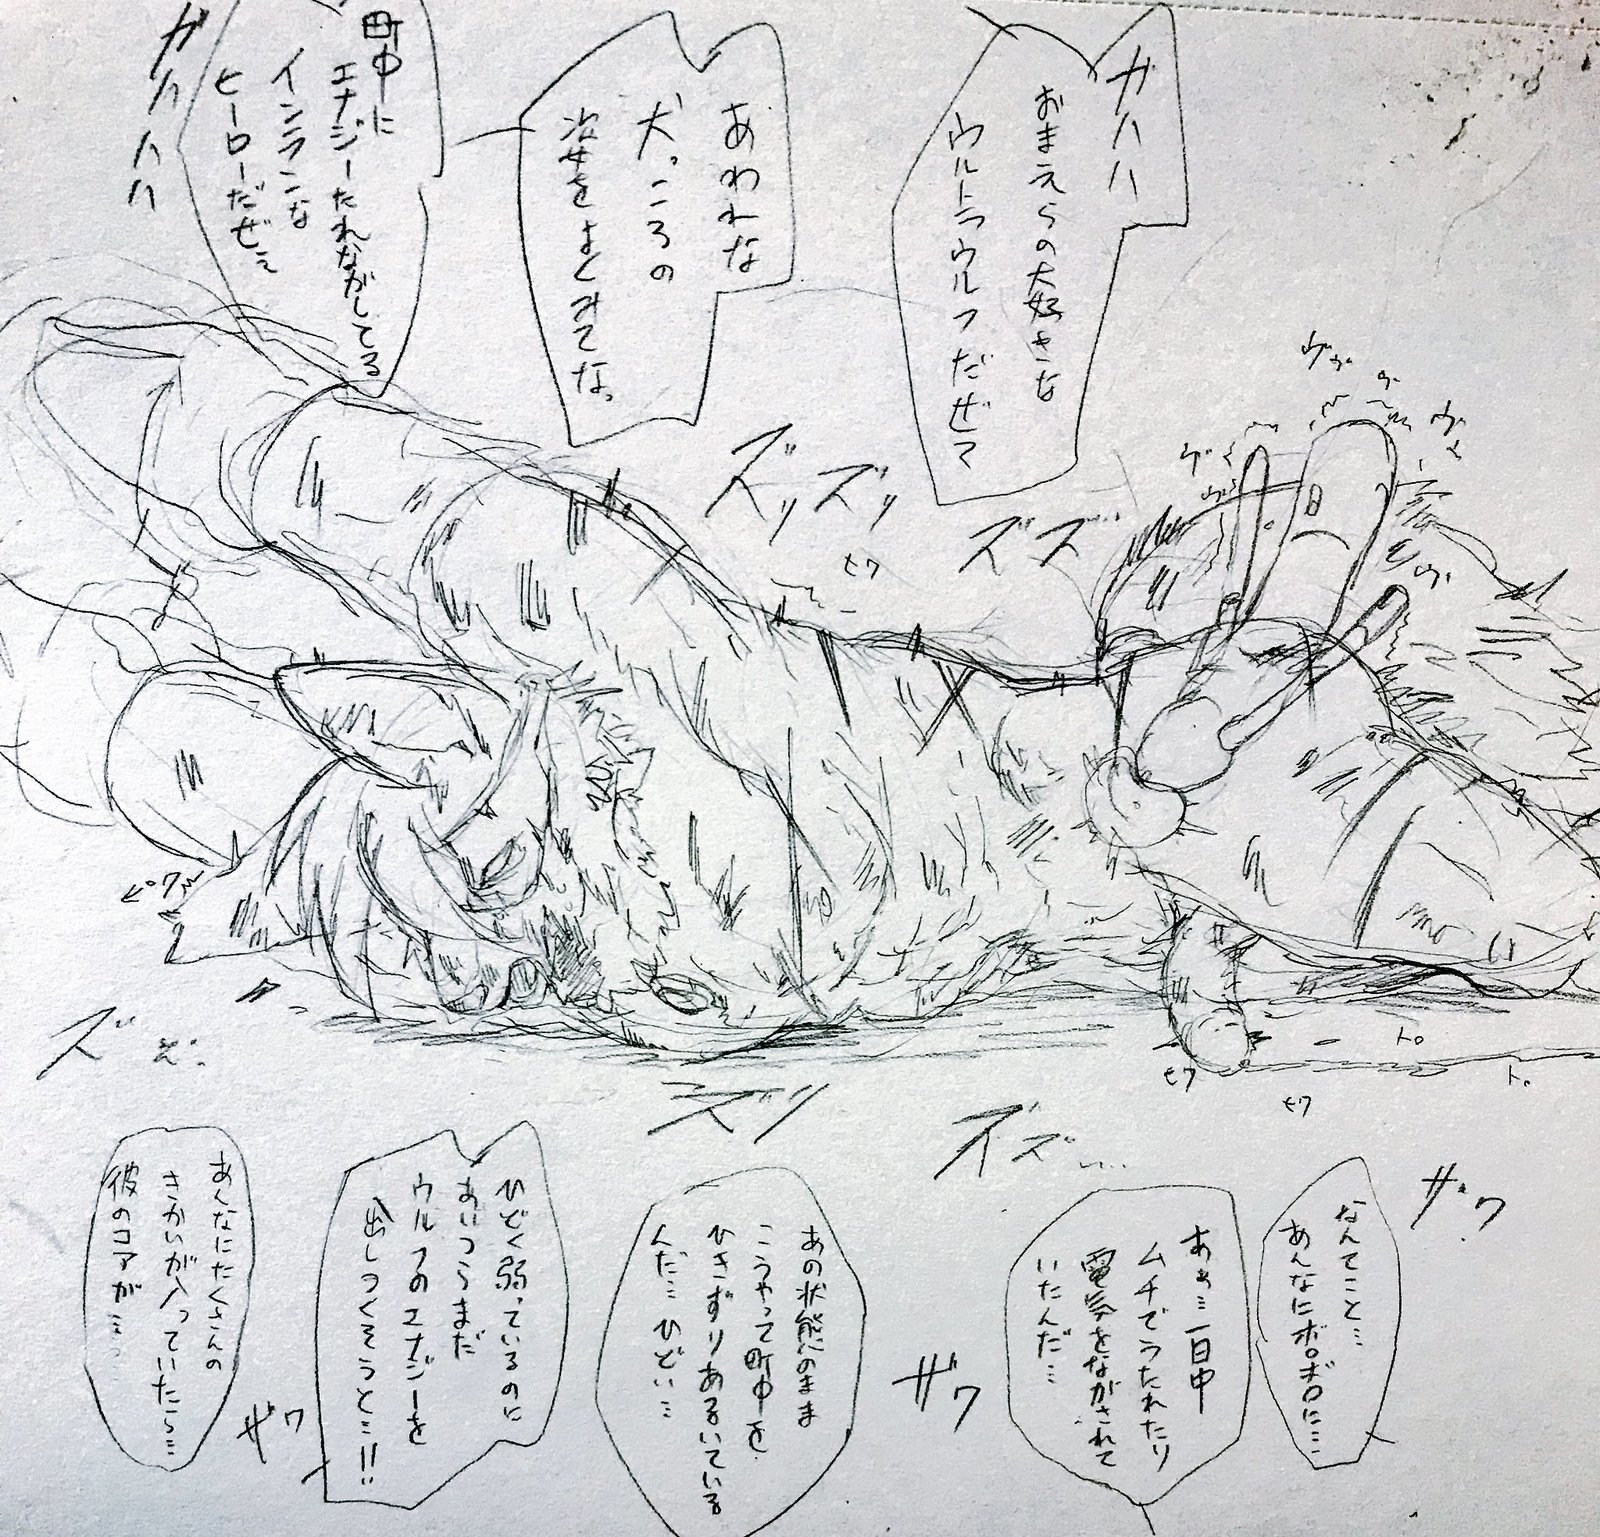 ガハハ
おまえらの大好きな
ウルトラウルフだぜェ
あわれな
犬っころの
姿をよくみてな。
町中に
エナジーたれながしてる
インランな
ヒーローだぜ…
ガハハハ
ズリズリ
ズズ…
ピク
ズ
ズリ
ズズ…
ピク
ピク
ザワ
なんてこと…
あんなにボロボロに…
あぁ…一日中
ムチでうたれたり
電気をながされて
いたんだ…
ザワ
あの状態のまま
こうやって町中を
ひきずりあるいている
んだ…ひどい…
ひどく弱っているのに
あいつらまだ
ウルフのエナジーを
出しつくそうと…!!
ザワ
あんなにたくさんの
きかいが入っていたら…
彼のコアが…